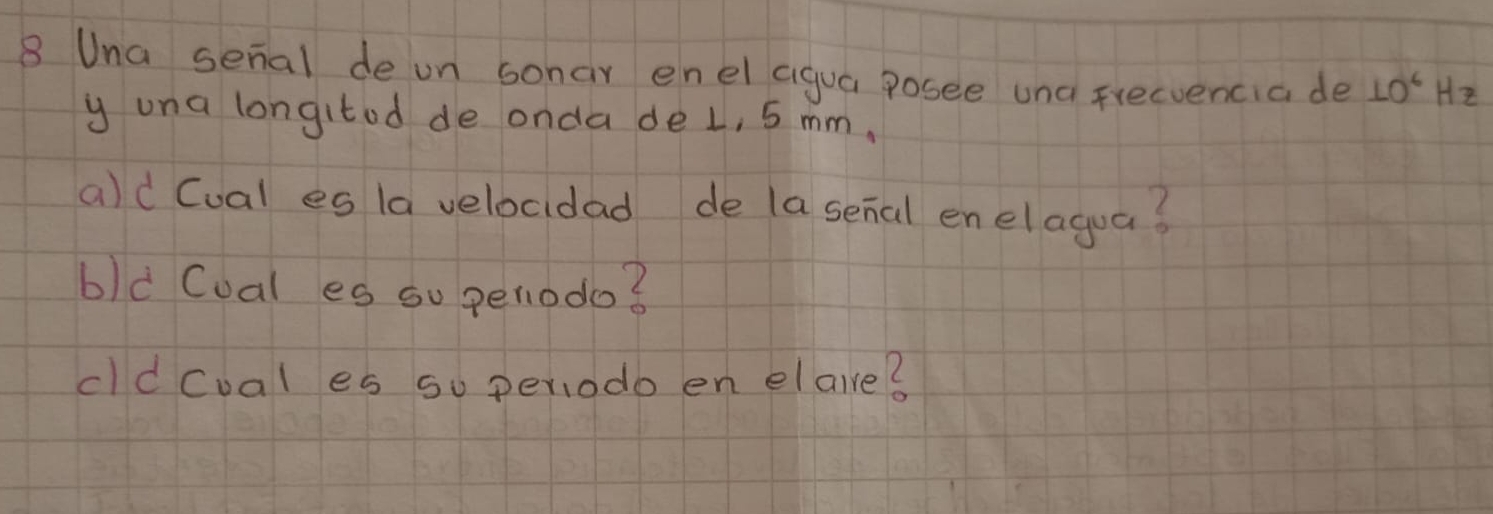 8 Una señal de un sonar en el agua posee una frecuencia de 10⁶ Hz
y una longitud de onda de 1,5 mm.
a) ¿Cual es la velocidad de la señal en el agua?
b) ¿Cual es su periodo?
c) ¿Cual es su periodo en el aire?